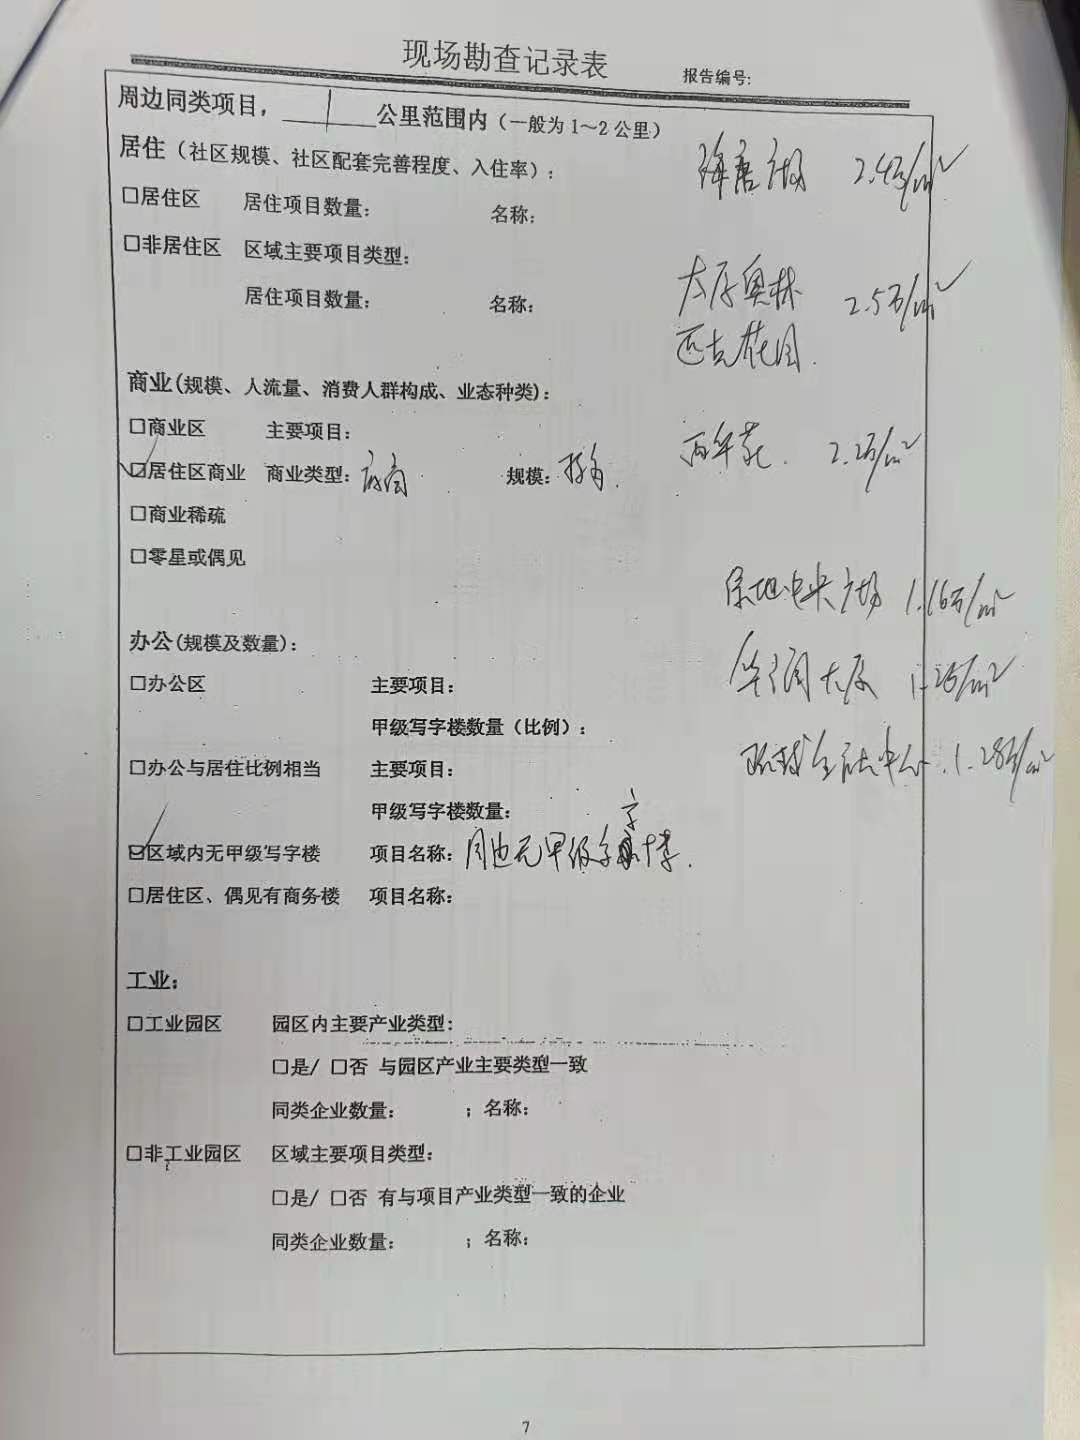 现场勘查记录表
报告编号:
周边同类项目，1公里范围内（一般为1～2公里）
居住（社区规模、社区配套完善程度、入住率）：
广场 2.4万/m²
□居住区 居住项目数量: 名称:
□非居住区 区域主要项目类型:
太原奥林 2.5万/m²
居住项目数量: 名称:
匹克花园.
商业(规模、人流量、消费人群构成、业态种类):
□商业区 主要项目:
百年 2.2万/m²
☑居住区商业 商业类型: 底商 规模:
□商业稀疏
□零星或偶见
绿地中央广场 1.16万/m²
办公(规模及数量):
华润大厦 1.2万/m²
□办公区 主要项目:
甲级写字楼数量（比例）:
环球金融中心. 1.28万/m²
□办公与居住比例相当 主要项目:
甲级写字楼数量:
☑区域内无甲级写字楼 项目名称: 周边无甲级写字楼.
□居住区、偶见有商务楼 项目名称:
工业:
□工业园区 园区内主要产业类型:
□是/ □否 与园区产业主要类型一致
同类企业数量: ；名称:
□非工业园区 区域主要项目类型:
□是/ □否 有与项目产业类型一致的企业
同类企业数量: ；名称:
7